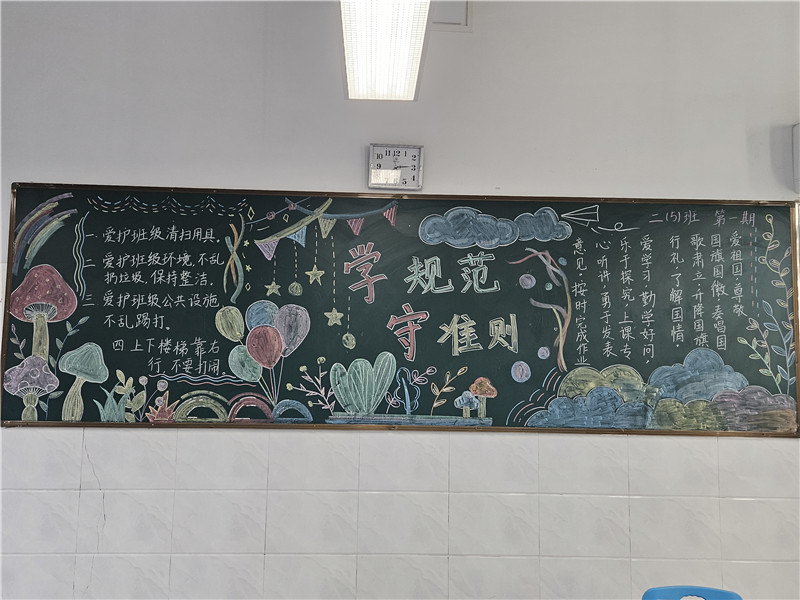 10 11 12 1
2
9
3
4
5
一 爱护班级清扫用具。
二 爱护班级环境,不乱
扔垃圾,保持整洁。
三 爱护班级公共设施,
不乱踢打。
四 上下楼梯靠右
行,不要打闹。
学规范
守准则
二(5)班 第一期
爱祖国,尊敬
国旗国徽,奏唱国
歌肃立,升降国旗
行礼,了解国情。
爱学习,勤学好问,
乐于探究,上课专
心听讲,勇于发表
意见,按时完成作业